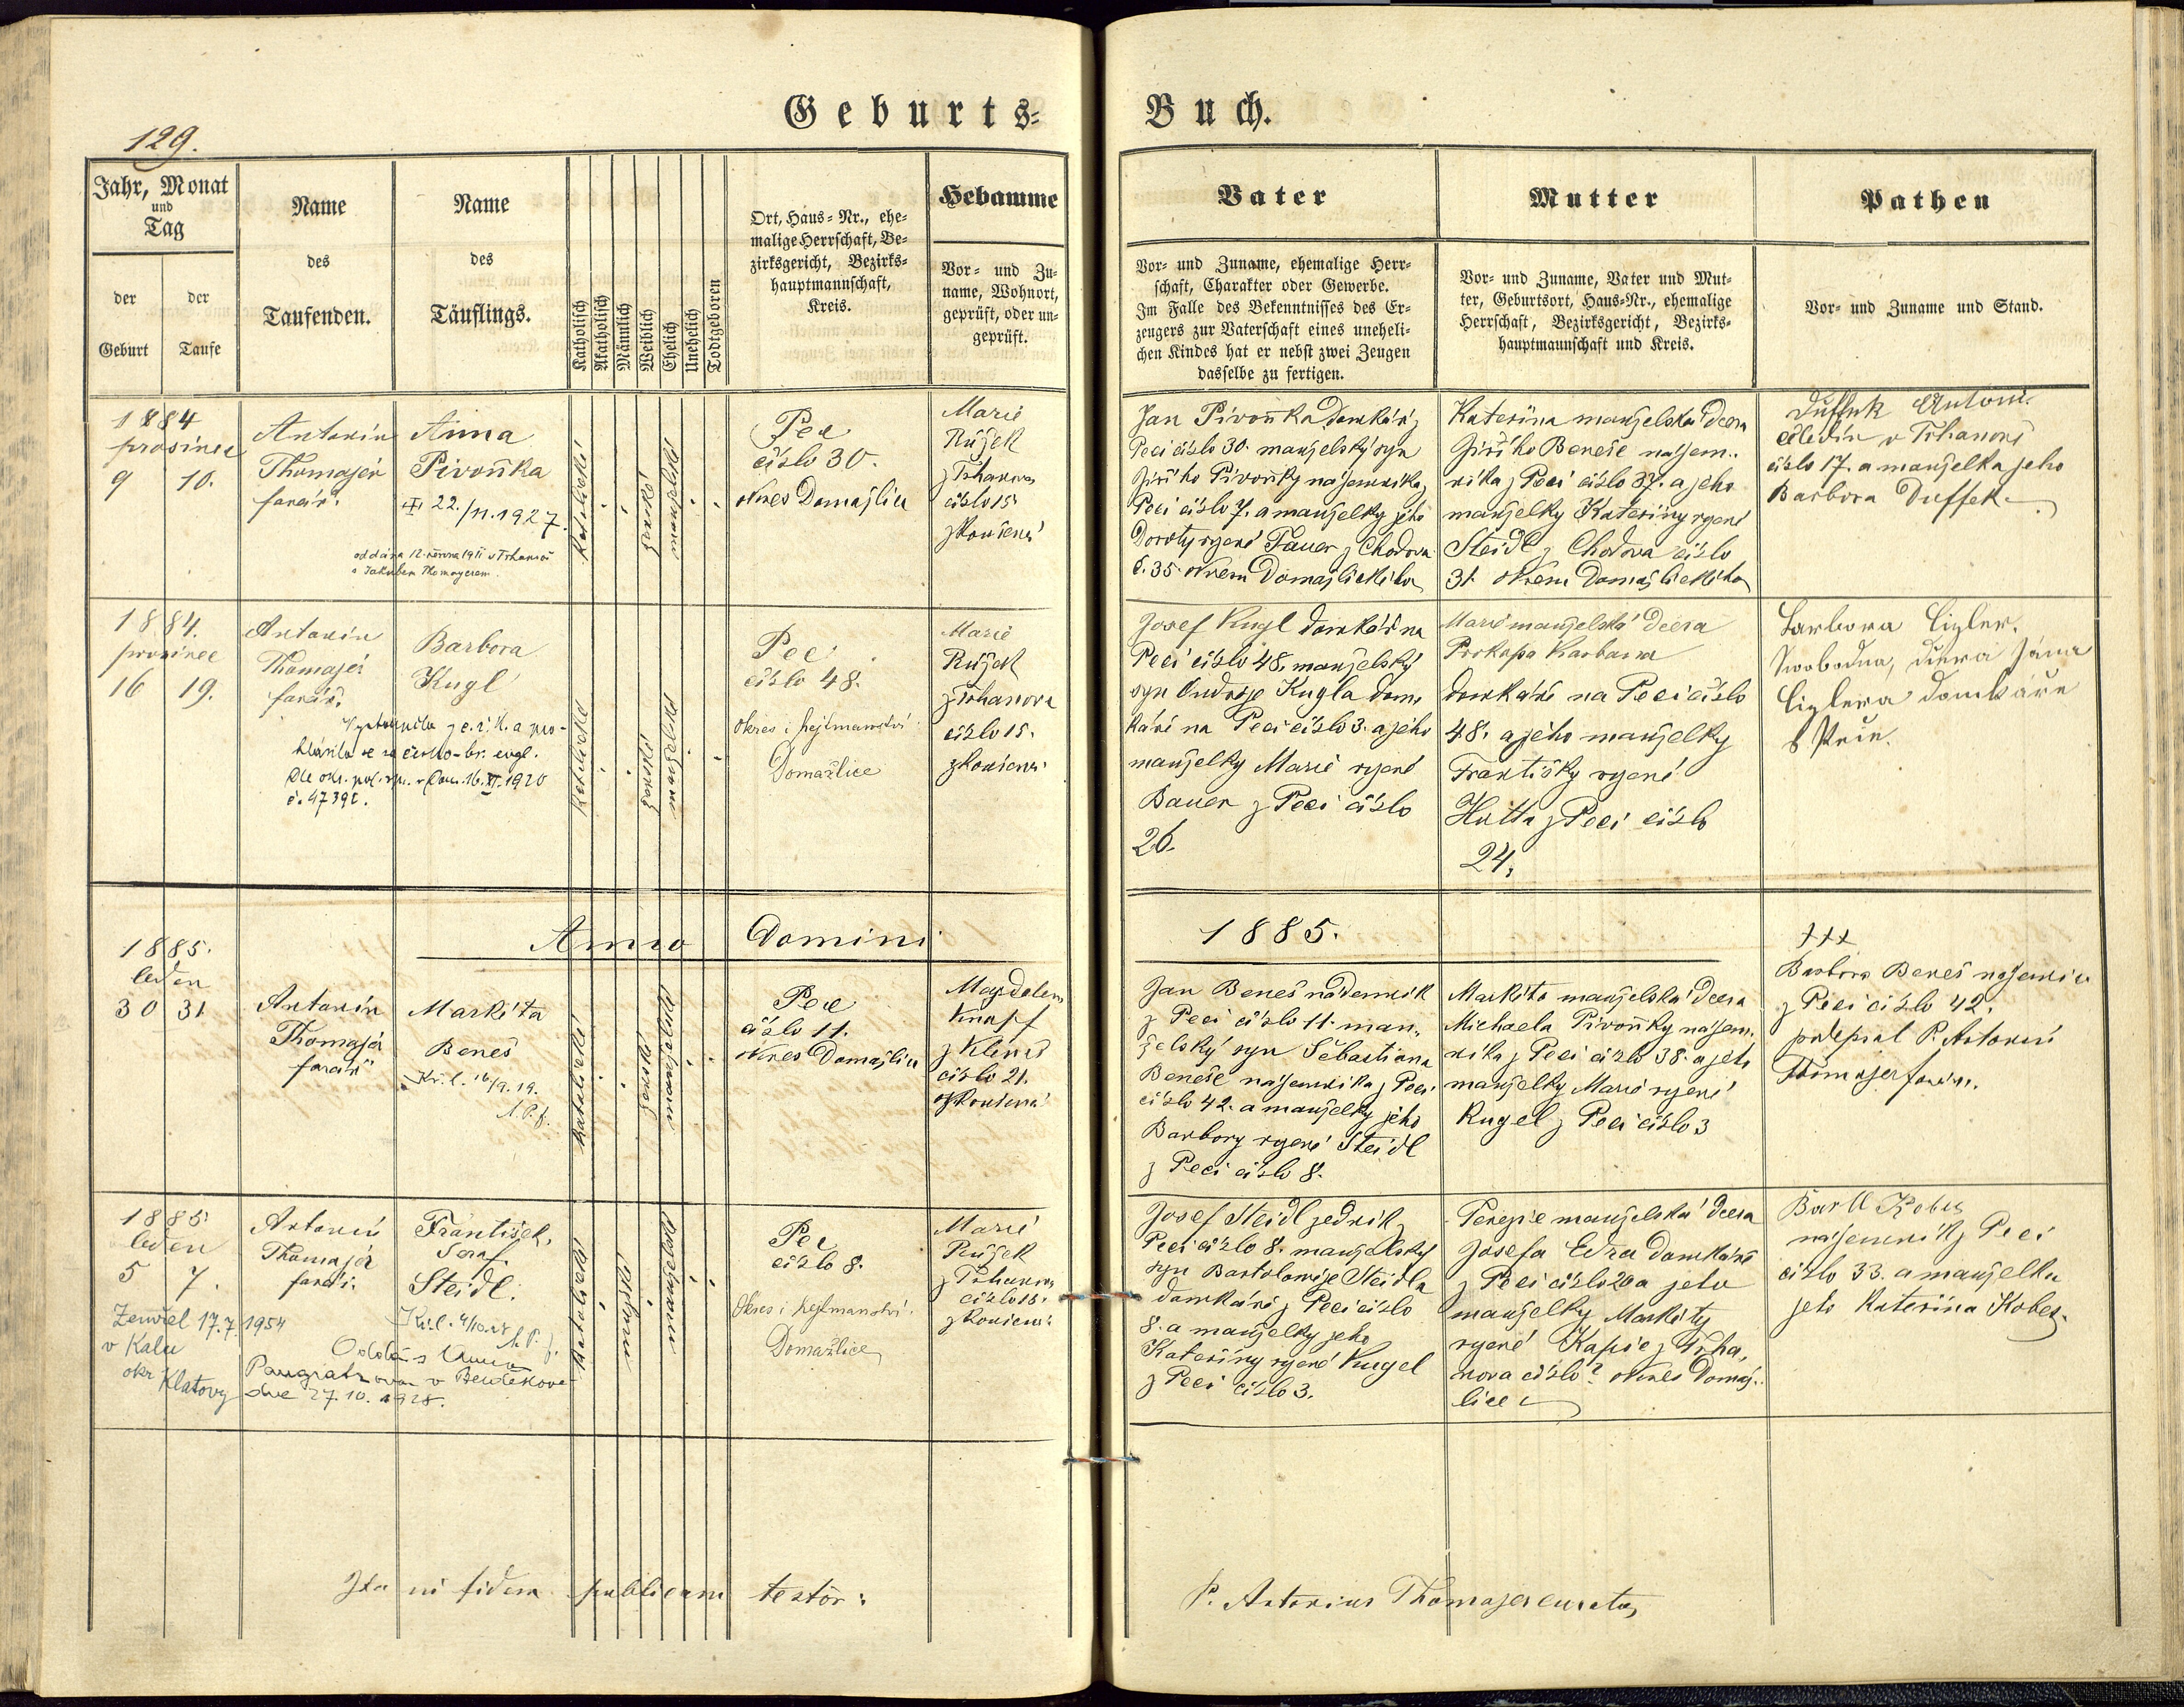 Geburts-
Buch.
129.
Jahr, Monat
und
Tag
der
Geburt
der
Taufe
Name
des
Taufenden.
Name
des
Täuflings.
Katholisch
Akatholisch
Männlich
Weiblich
Ehelich
Unehelich
Todtgeboren
Ort, Haus-Nr., ehe-
malige Herrschaft, Be-
zirksgericht, Bezirks-
hauptmannschaft,
Kreis.
Hebamme
Vor- und Zu-
name, Wohnort,
geprüft, oder un-
geprüft.
Vater
Vor- und Zuname, ehemalige Herr-
schaft, Charakter oder Gewerbe.
Im Falle des Bekenntnisses des Er-
zeugers zur Vaterschaft eines uneheli-
chen Kindes hat er nebst zwei Zeugen
dasselbe zu fertigen.
Mutter
Vor- und Zuname, Vater und Mut-
ter, Geburtsort, Haus-Nr., ehemalige
Herrschaft, Bezirksgericht, Bezirks-
hauptmannschaft und Kreis.
Pathen
Vor- und Zuname und Stand.
1884
prosinec
9 10.
Antonín
Thomajer
farář.
Anna
Pivoňka
22./11.1927.
oddána 12. června 1911 v Trhanově
s Jakubem Thomayerem
Katolické
ženské
manželské
Pec
číslo 30.
okres Domažlice
Marie
Růžek
z Trhanova
číslo 15
zkoušená
Jan Pivoňka domkář z
Peci číslo 30. manželský syn
Jiřího Pivoňky nájemníka z
Peci číslo 7. a manželky jeho
Doroty rozené Pauer z Chodova
č. 35. okresu Domažlického
Kateřina manželská dcera
Jiřího Beneše nájem-
níka z Peci číslo 37. a jeho
manželky Kateřiny rozené
Steidl z Chodova číslo
31. okresu Domažlického
Duffek Antoni
čeledín v Trhanově
číslo 17. a manželka jeho
Barbora Duffek
1884.
prosinec
16 19.
Antonín
Thomajer
farář.
Barbora
Kugl
Vystoupila z c. ř. k. a pro-
hlásila se za česko-br. evgl.
Dle ozn. pol. spr. v Dom. 16. XI. 1920
Katolické
ženské
manželské
Pec
číslo 48.
okres i hejtmanství
Domažlice
Marie
Růžek
z Trhanova
číslo 15.
zkoušená
Josef Kugl domkář na
Peci číslo 48. manželský
syn Ondřeje Kugla dom-
káře na Peci číslo 3. a jeho
manželky Marie rozené
Bauer z Peci číslo
26.
Marie manželská dcera
Prokopa Karbana
domkáře na Peci číslo
48. a jeho manželky
Františky rozené
Hutta z Peci číslo
24.
Barbora Cigler,
svobodna, dcera Jána
Ciglera domkáře
Anno Domini
1885.
1885.
leden
30 31
Antonín
Thomajer
farář
Markéta
Beneš
Kř. l. 16/9.19.
Katolické
ženské
manželské
Pec
číslo 11.
okres Domažlice
Magdalena
Knopf
z Klenčí
číslo 21.
zkoušená
Jan Beneš nádenník
z Peci číslo 11. man-
želský syn Šebastiana
Beneše nájemníka z Peci
číslo 42. a manželky jeho
Barbory rozené Steidl
z Peci číslo 8.
Markéta manželská dcera
Michaela Pivoňky nájem-
níka z Peci číslo 38. a jeho
manželky Marie rozené
Kugel z Peci číslo 3
+++
Barbora Beneš nájemnice
z Peci číslo 42.
podepsal P. Antonín
Thomajer farář.
1885
leden
5 7.
Antonín
Thomajer
farář.
František,
Seraf.
Steidl.
Kř. l. 4/10.28
Zemřel 17.7.1954
v Kalu
okr Klatovy
Oddán s Annou
Pangratzovou v Bezděkově
dne 27.10.1928.
Katolické
mužské
manželské
Pec
číslo 8.
Okres i hejtmanství
Domažlice
Marie
Růžek
z Trhanova
číslo 15.
zkoušená
Josef Steidl zedník z
Peci číslo 8. manželský
syn Bartoloměje Steidla
domkáře z Peci číslo
8. a manželky jeho
Kateřiny rozené Kugel
z Peci číslo 3.
Terezie manželská dcera
Josefa Edra domkáře
z Peci číslo 20 a jeho
manželky Markéty
rozené Kapic z Trha-
nova číslo ? okres Domaž-
lice
Bartl Kobes
nájemník z Peci
číslo 33. a manželka
jeho Kateřina Kobes.
Ita in fidem publicam testor:
P. Antonius Thomajer curatus